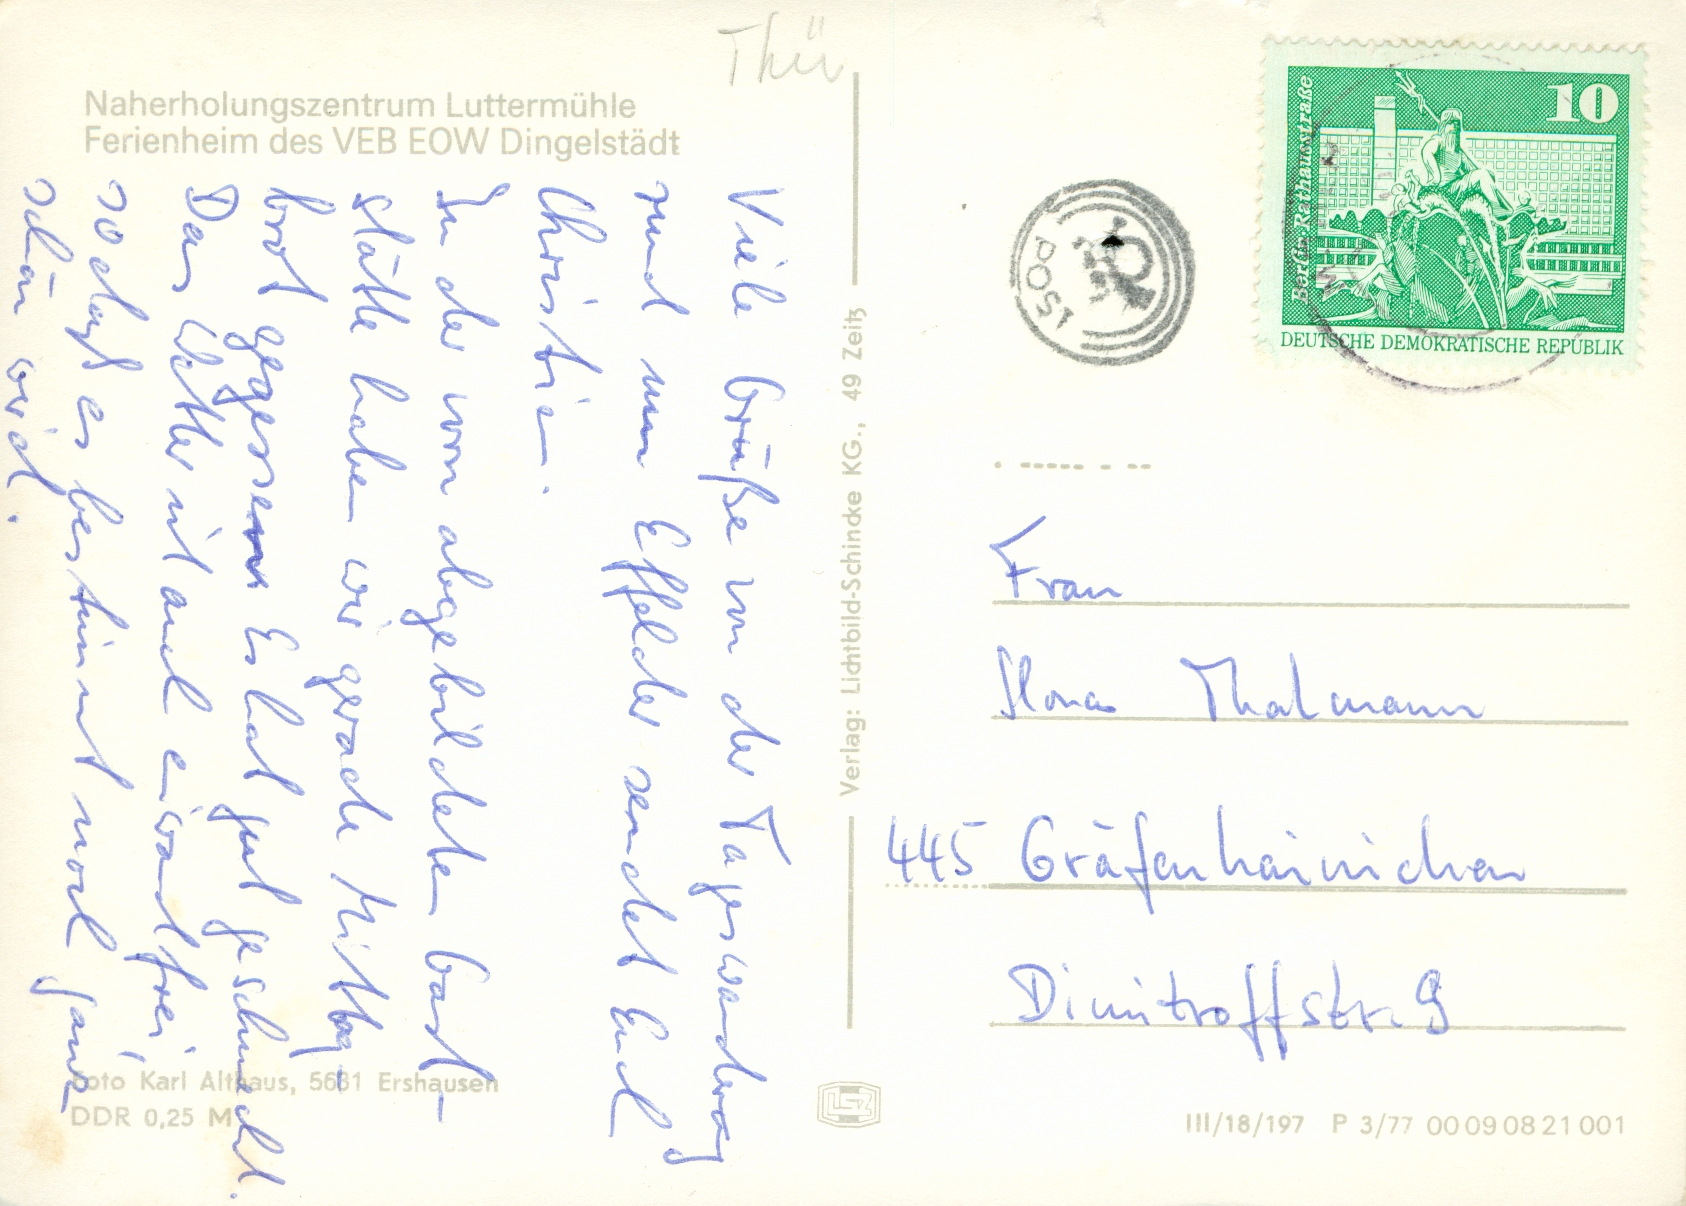 Thür
Naherholungszentrum Luttermühle
Ferienheim des VEB EOW Dingelstädt
Viele Grüße von der Tageswanderung
rund um Effelder sendet Euch
Christie.
In der vorn abgebildeten Gast-
stätte haben wir gerade Mittag-
brot gegessen. Es hat gut geschmeckt.
Das Wetter ist auch einwandfrei,
so daß es bestimmt noch ganz
schön wird.
Foto Karl Althaus, 5631 Ershausen
DDR 0,25 M
Verlag: Lichtbild-Schincke KG., 49 Zeitz
10
Berlin Rathausstraße
DEUTSCHE DEMOKRATISCHE REPUBLIK
POST
Frau
Ilona Thalmann
445 Gräfenhainichen
Dimitroffstr. 9
III/18/197 P 3/77 00 09 08 21 001